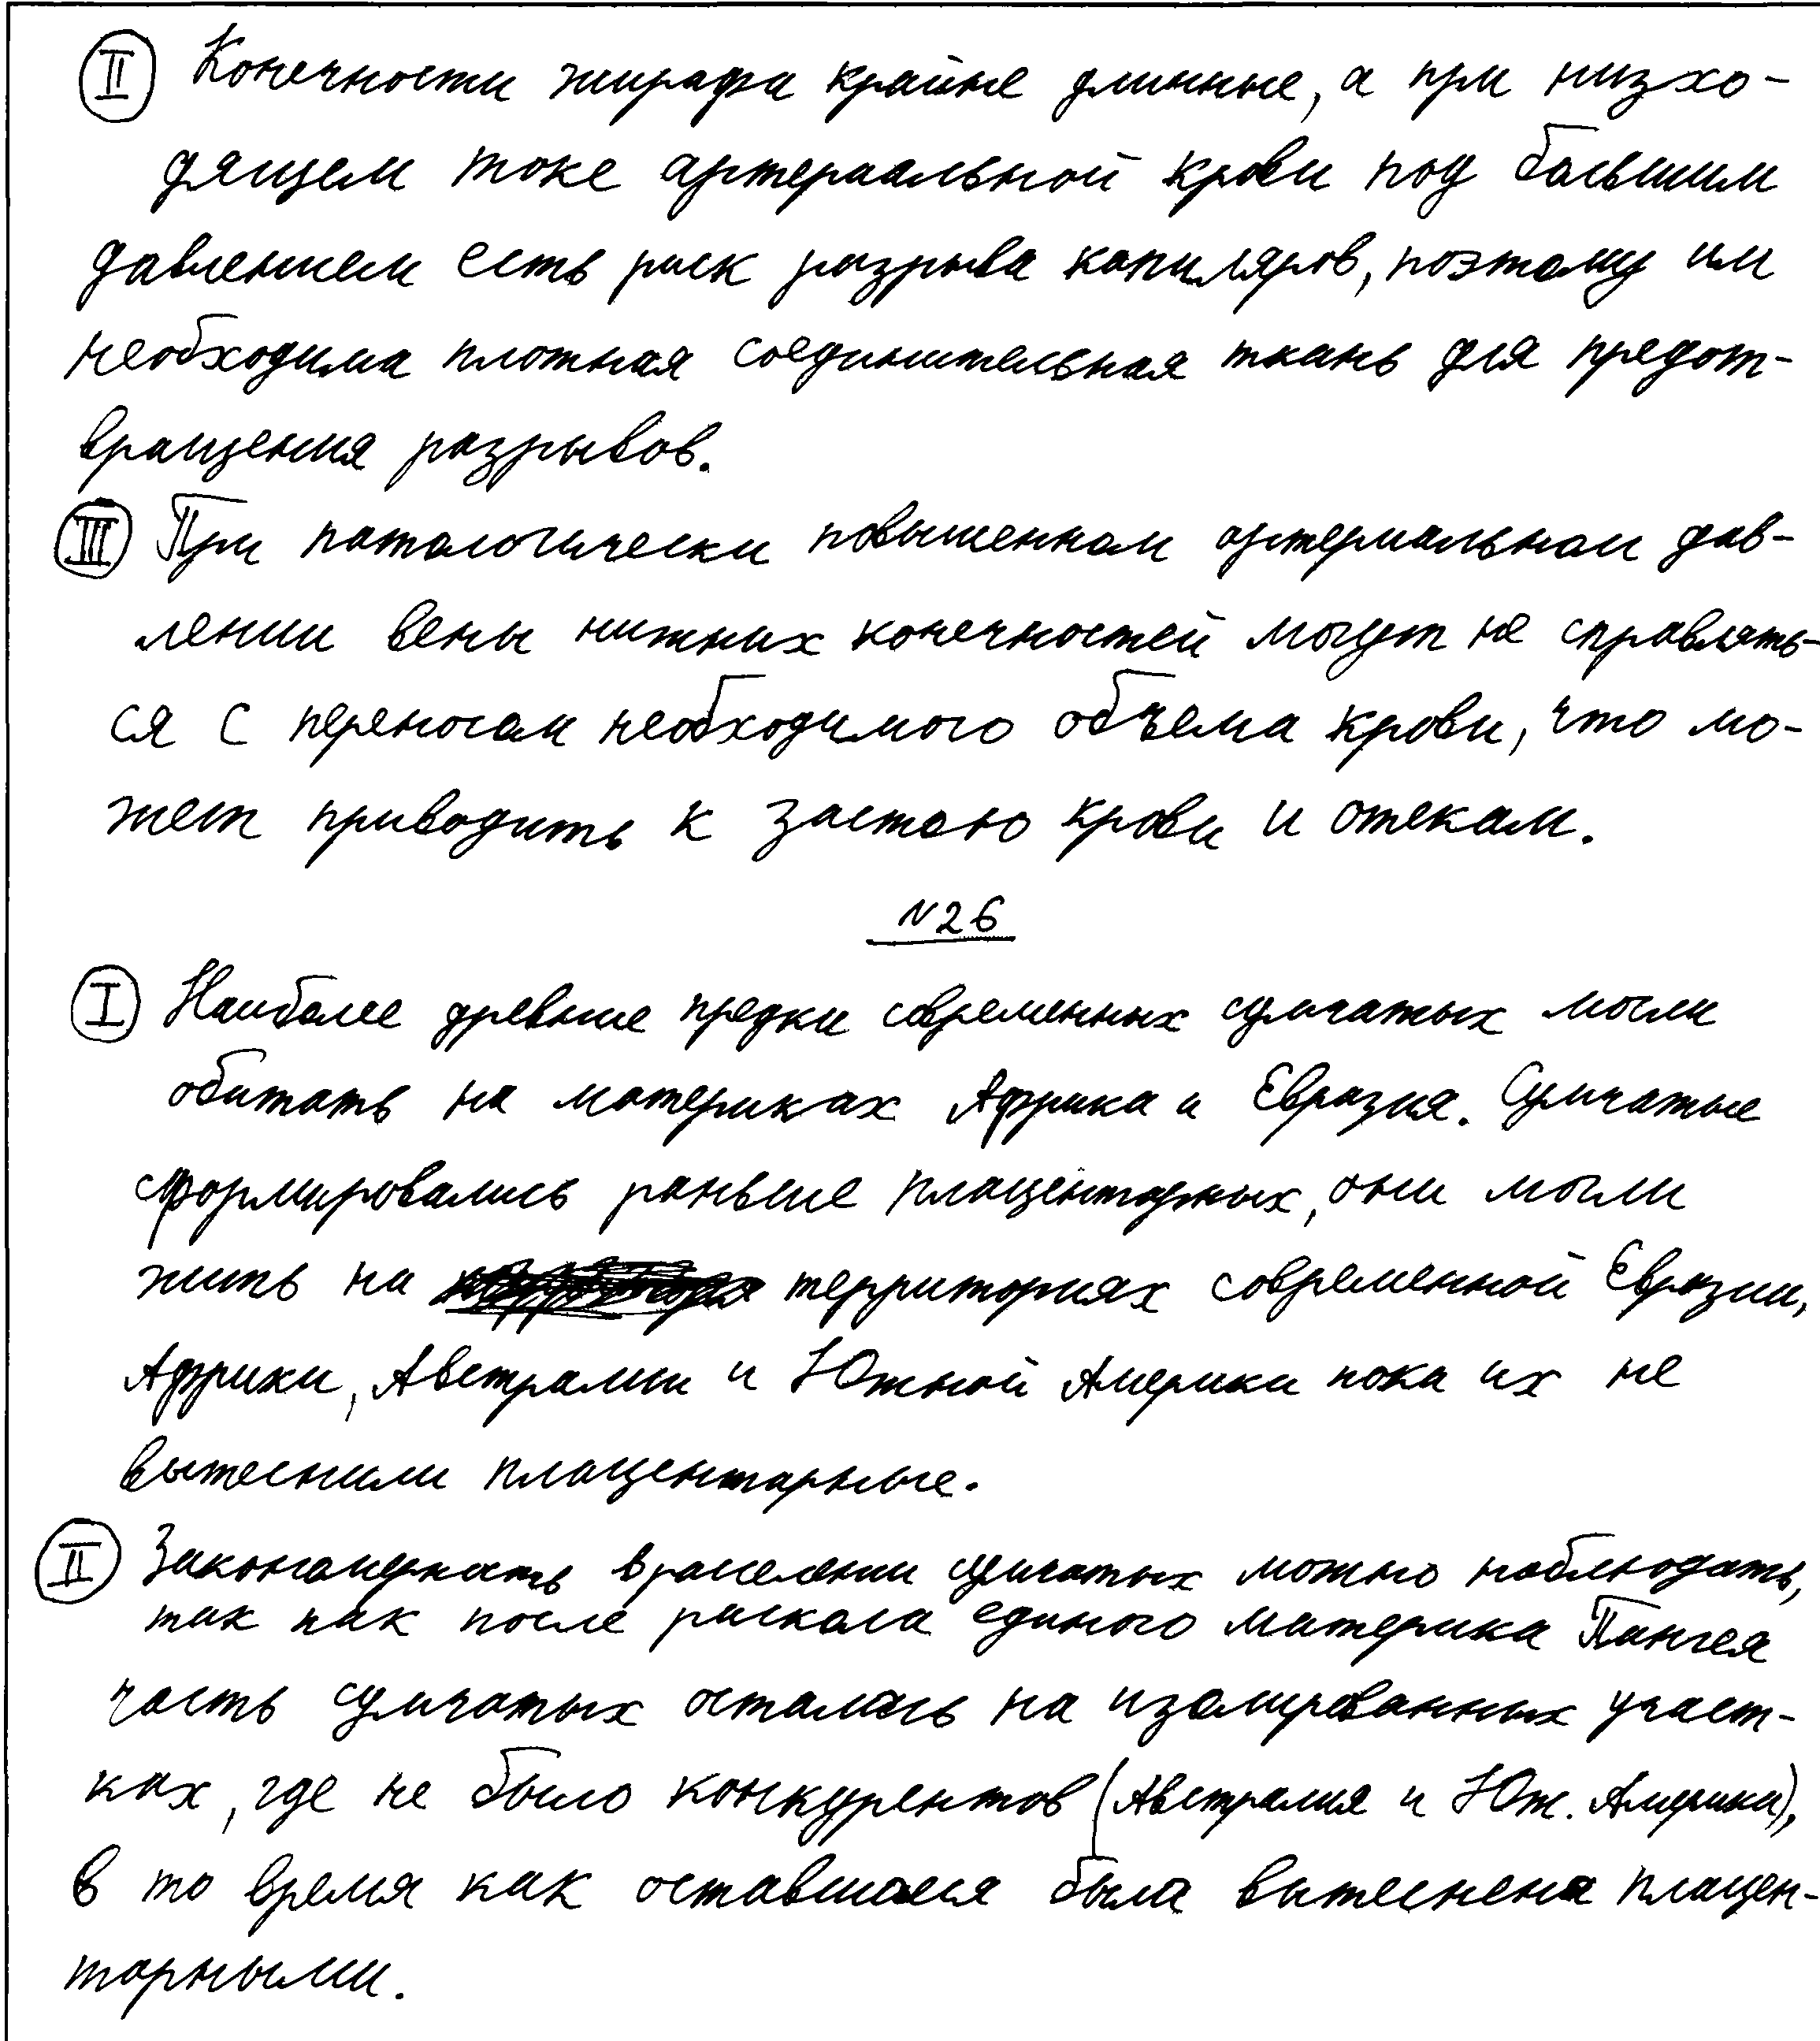 II Конечности жирафа крайне длинные, а при низхо-
дящем токе артериальной крови под большим
давлением есть риск разрыва капиляров, поэтому им
необходима плотная соединительная ткань для предот-
вращения разрывов.
III При патологически повышенном артериальном дав-
лении вены нижних конечностей могут не справлять-
ся с переносом необходимого объема крови, что мо-
жет приводить к застою крови и отекам.
№26
I Наиболее древние предки современных сумчатых могли
обитать на материках Африка и Евразия. Сумчатые
сформировались раньше плацентарных, они могли
жить на территориях современной Евразии,
Африки, Австралии и Южной Америки пока их не
вытеснили плацентарные.
II Закономерность в расселении сумчатых можно наблюдать,
так как после раскола единого материка Пангея
часть сумчатых осталась на изолированных участ-
ках, где не было конкурентов (Австралия и Юж. Америка),
в то время как оставшаяся была вытеснена плацен-
тарными.